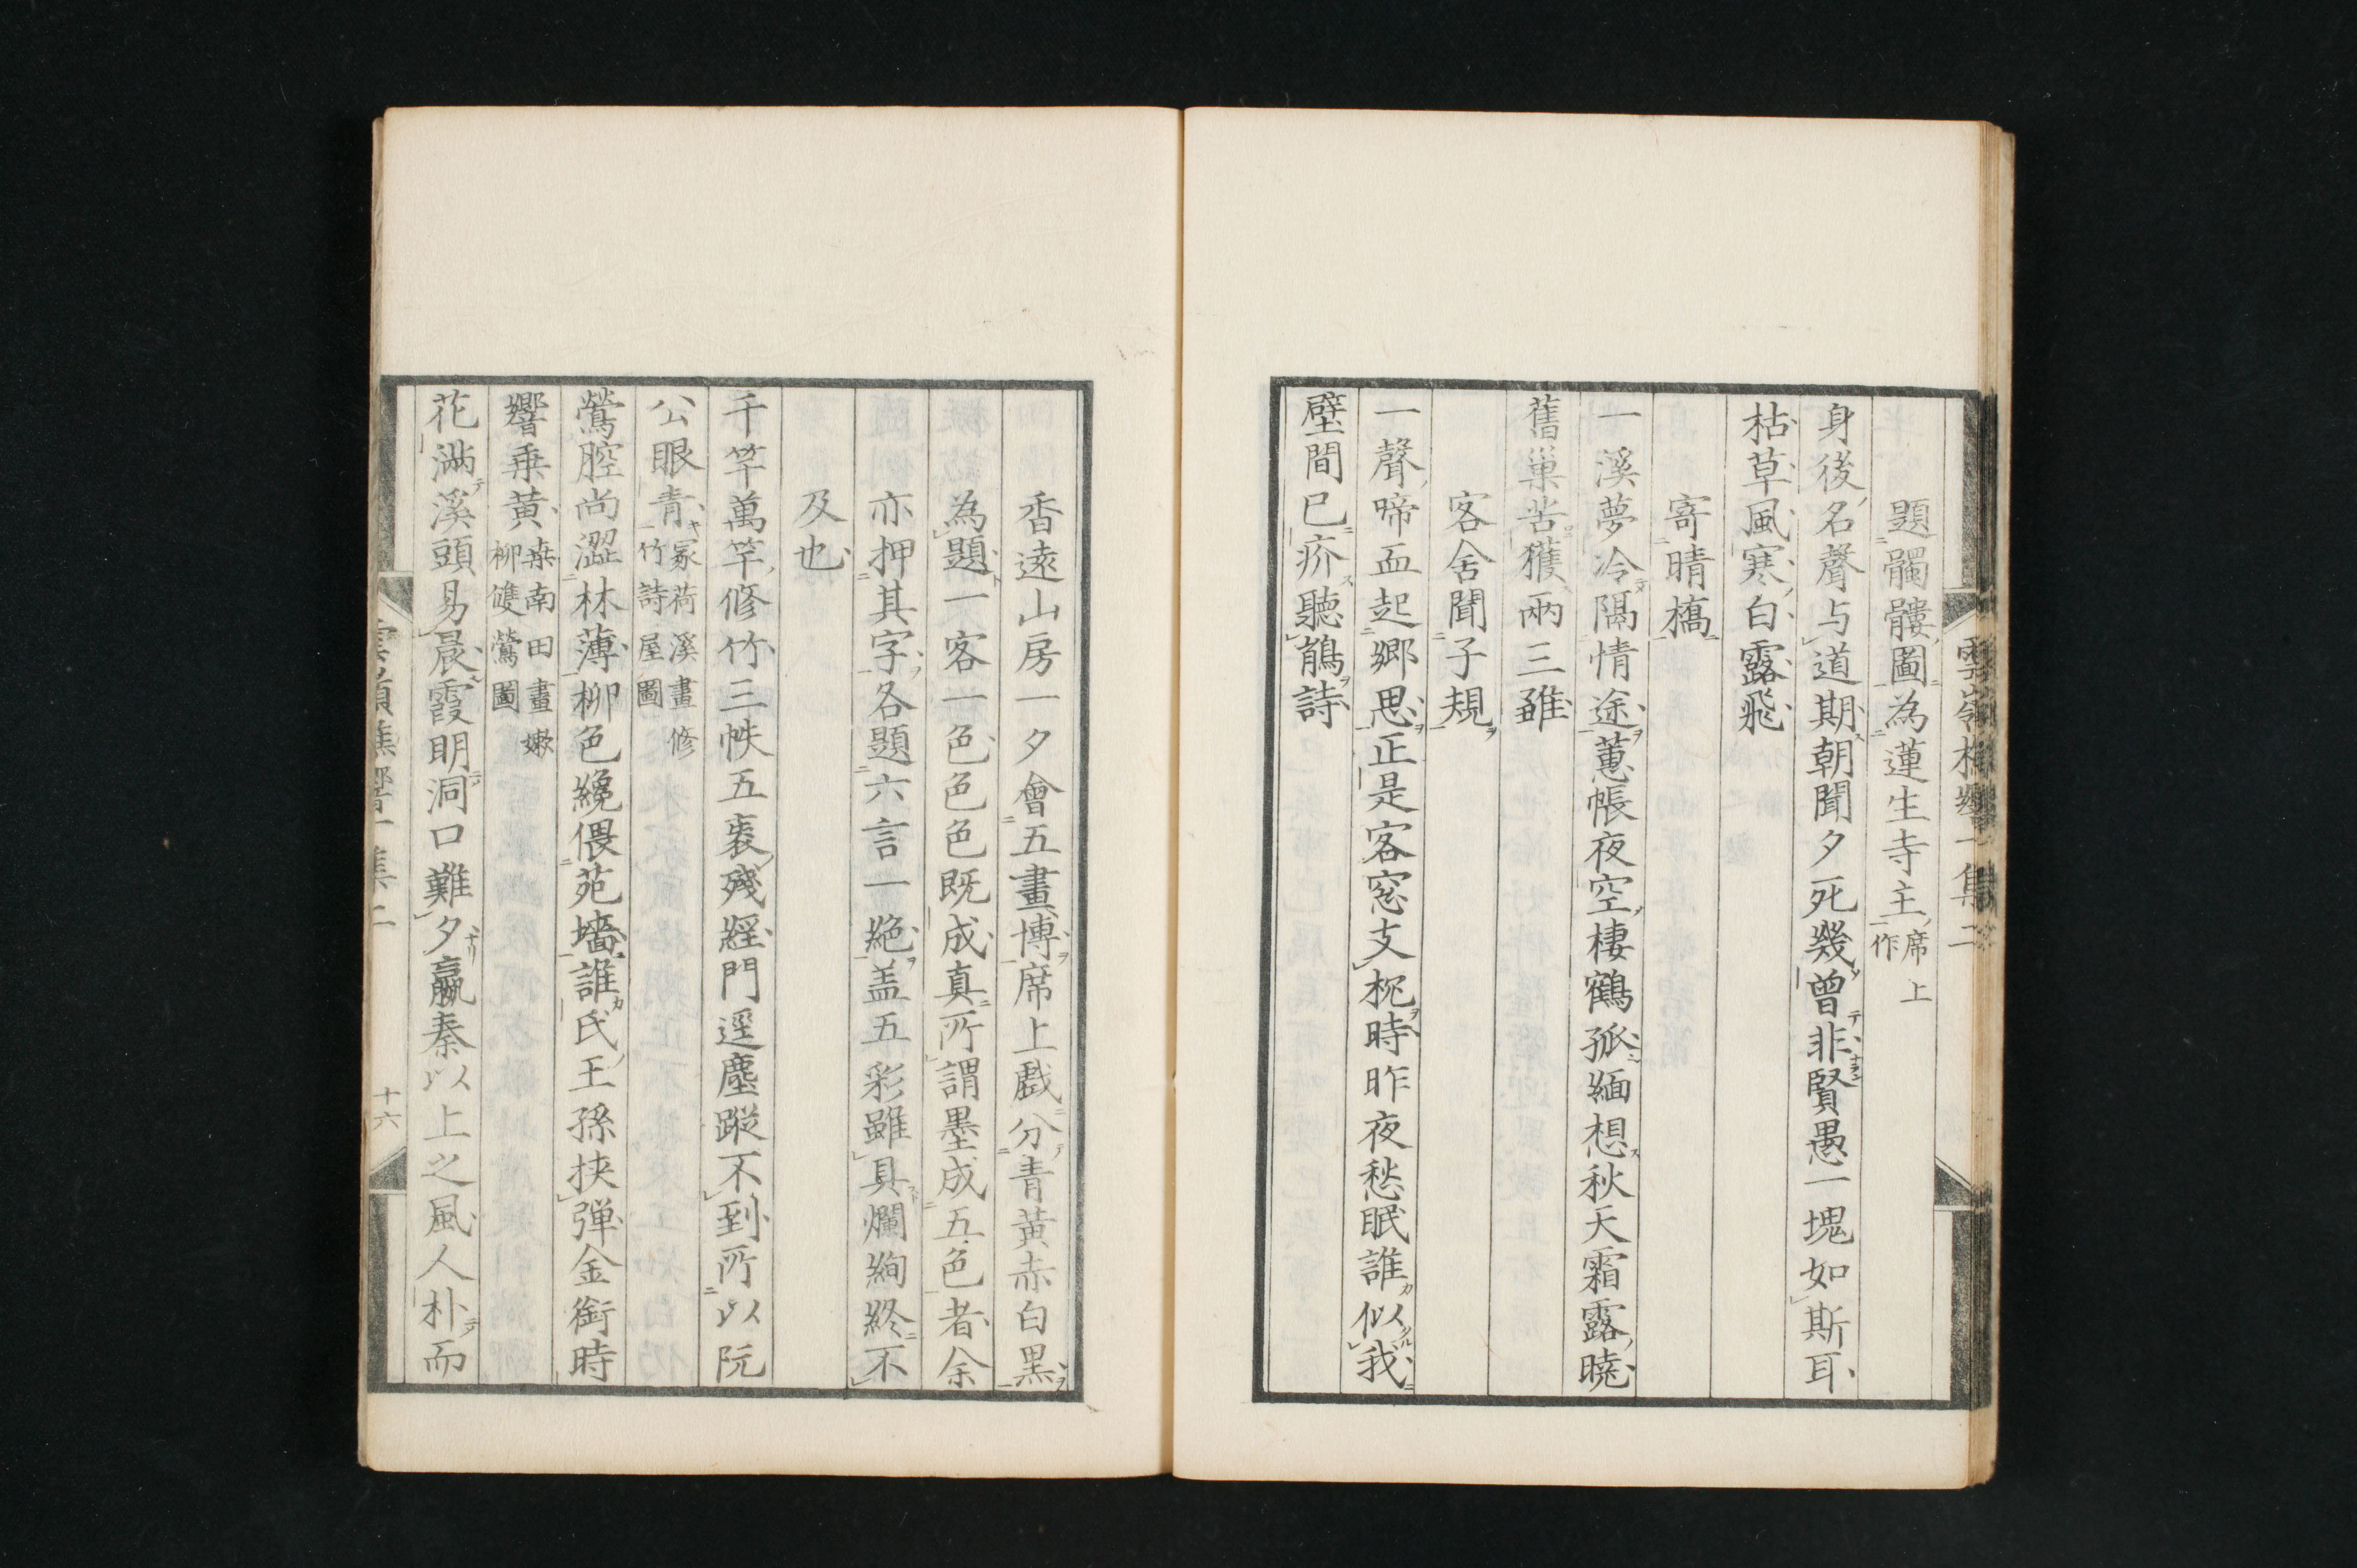 題髑髏圖為蓮生寺主席上作
身後名聲与道期朝聞夕死幾曾非賢愚一塊如斯耳
枯草風寒白露飛
寄晴橋
一溪夢冷隔情途蕙帳夜空棲鶴孤緬想秋天霜露曉
舊巢苦獲兩三雖
客舍聞子規
一聲啼血起鄉思正是客窓支枕時昨夜愁眠誰似我
壁間已疥聽鵑詩
香遠山房一夕會五畫博席上戲分青黃赤白黒
為題一客一色色色既成真所謂墨成五色者余
亦押其字各題六言一絶盖五彩雖具爛絢終不
及也
千竿萬竿修竹三帙五裘殘經門逕塵蹤不到所以阮
公眼青冢荷溪畫修竹詩屋圖
鶯腔尚澀林薄柳色纔偎苑墻誰氏王孫挾彈金銜時
響乗黃桒南田畫嫩柳雙鶯圖
花滿溪頭易晨霞明洞口難夕嬴秦以上之風人朴而
十六